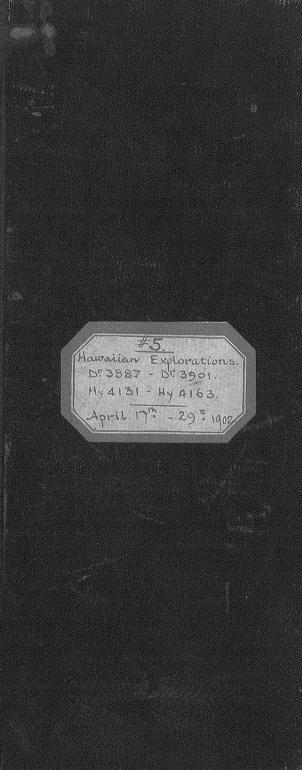 #5.
Hawaiian Explorations.
Dr 3887 - Dr 3901.
Hy 4131 - Hy 4163.
April 17th - 29th 1902